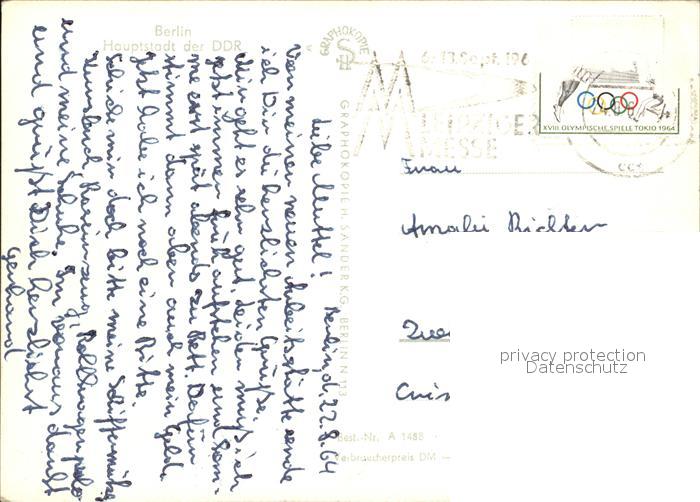 Berlin
Hauptstadt der DDR
GRAPHOKOPIE
6.-13. Sept. 196
LEIPZIGER
MESSE
XVIII. OLYMPISCHE SPIELE TOKIO 1964
GRAPHOKOPIE H. SANDER K.G., BERLIN N 113
Berlin, d. 22.8.64
Liebe Mutti!
Von meinen neuen Arbeitsstätte sende
ich Dir die herzlichsten Grüße.
Mir geht es sehr gut, leider muß ich
jetzt immer früh aufstehen und kom-
me erst spät abends zu Bett. Dafür
stimmt dann aber auch mein Geld.
Jetzt habe ich noch eine Bitte.
Schick mir doch bitte meine Schiffermütze,
Rasierzeug,
und meine Schuhe. Im voraus dankt
und grüßt Dich herzlichst
Gerhard
Frau
Amalie Richter
Zwe
privacy protection
Datenschutz
Best.-Nr. A 1488
Verbraucherpreis DM —